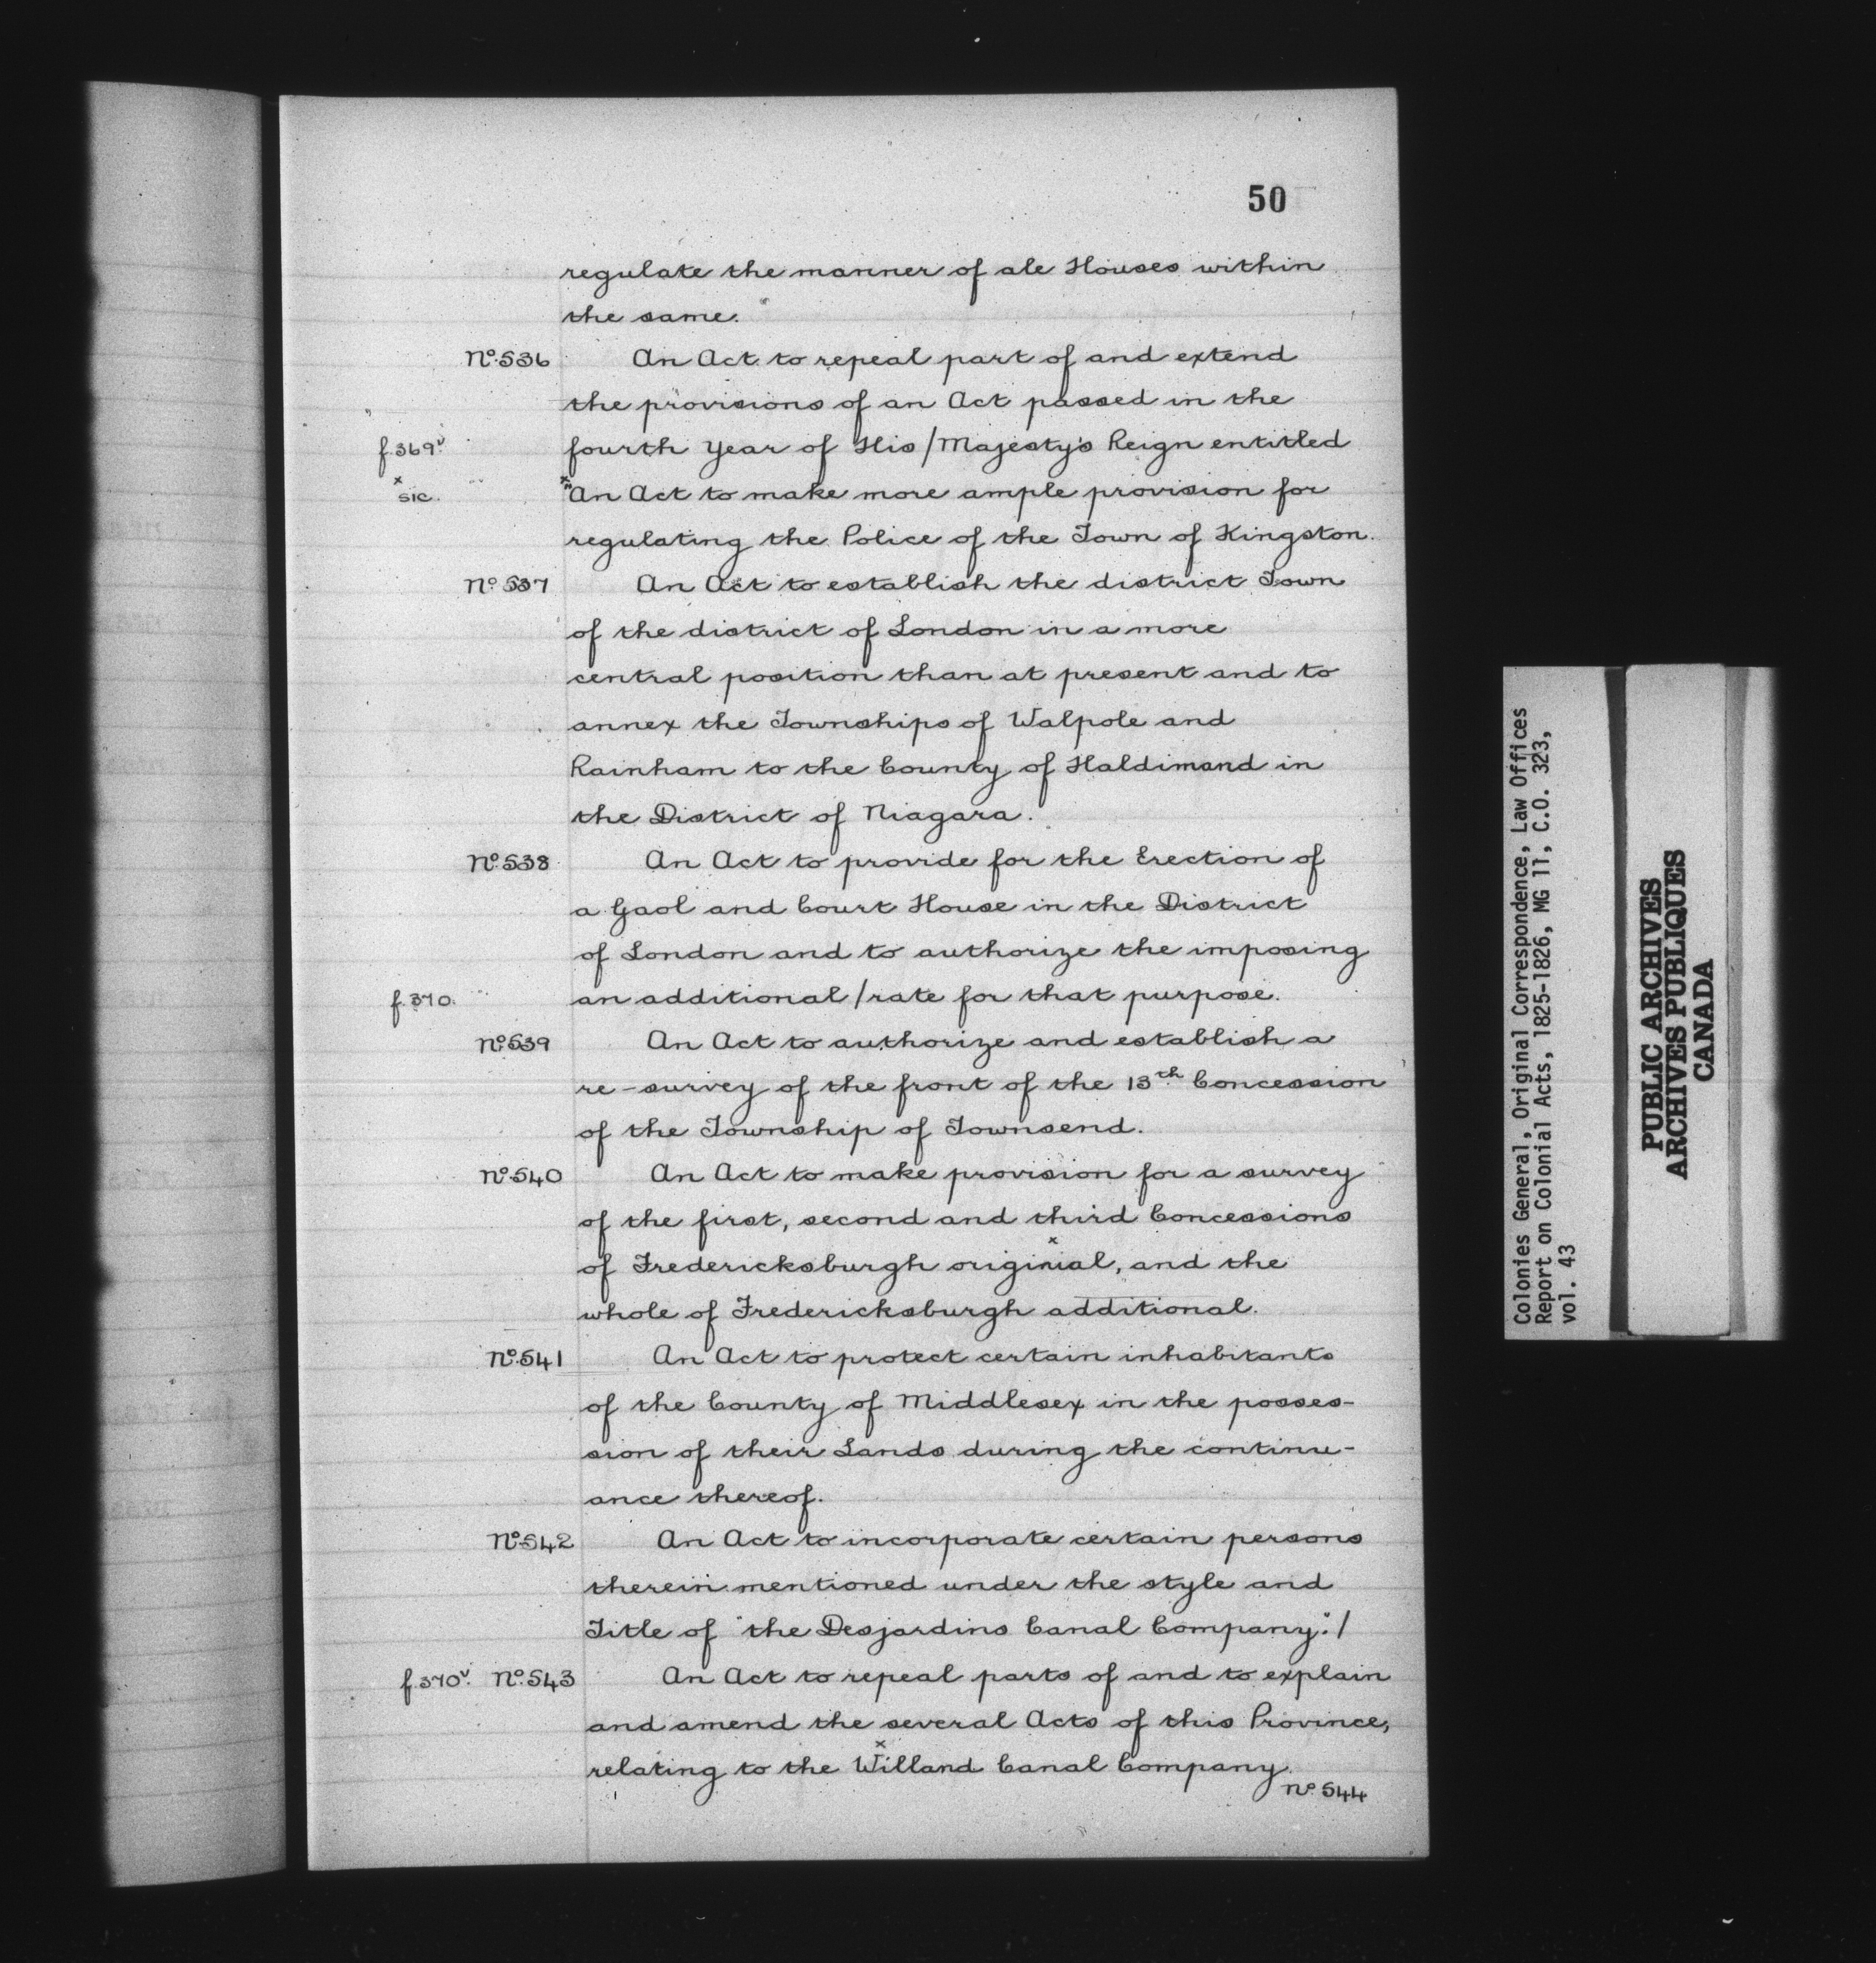 50
regulate the manner of ale Houses within
the same.
No. 536 An Act to repeal part of and extend
the provisions of an Act passed in the
f. 369v. fourth Year of His/Majesty's Reign entitled
x sic. x"An Act to make more ample provision for
regulating the Police of the Town of Kingston.
No. 537 An Act to establish the district Town
of the district of London in a more
central position than at present and to
annex the Townships of Walpole and
Rainham to the County of Haldimand in
the District of Niagara.
No. 538 An Act to provide for the Erection of
a Gaol and Court House in the District
of London and to authorize the imposing
f. 370. an additional/rate for that purpose.
No. 539 An Act to authorize and establish a
re-survey of the front of the 13th Concession
of the Township of Townsend.
No. 540 An Act to make provision for a survey
of the first, second and third Concessions
x
of Fredericksburgh originial, and the
whole of Fredericksburgh additional.
No. 541 An Act to protect certain inhabitants
of the County of Middlesex in the posses-
sion of their Lands during the continu-
ance thereof.
No. 542 An Act to incorporate certain persons
therein mentioned under the style and
Title of "the Desjardins Canal Company."/
f. 370v. No. 543 An Act to repeal parts of and to explain
and amend the several Acts of this Province,
x
relating to the Willand Canal Company.
No. 544
Colonies General, Original Correspondence, Law Offices
Report on Colonial Acts, 1825-1826, MG 11, C.O. 323,
vol. 43
PUBLIC ARCHIVES
ARCHIVES PUBLIQUES
CANADA